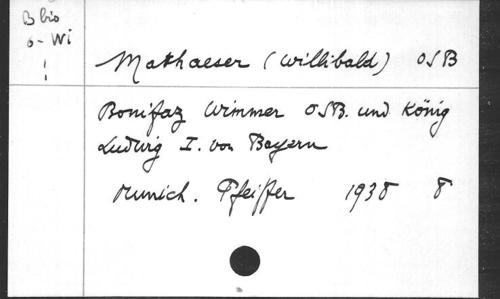 B bio
o- Wi
!
Mathaeser (Willibald) OSB
Bonifaz Wimmer OSB. und König
Ludwig I. von Bayern
Munich. Pfeiffer 1938 8